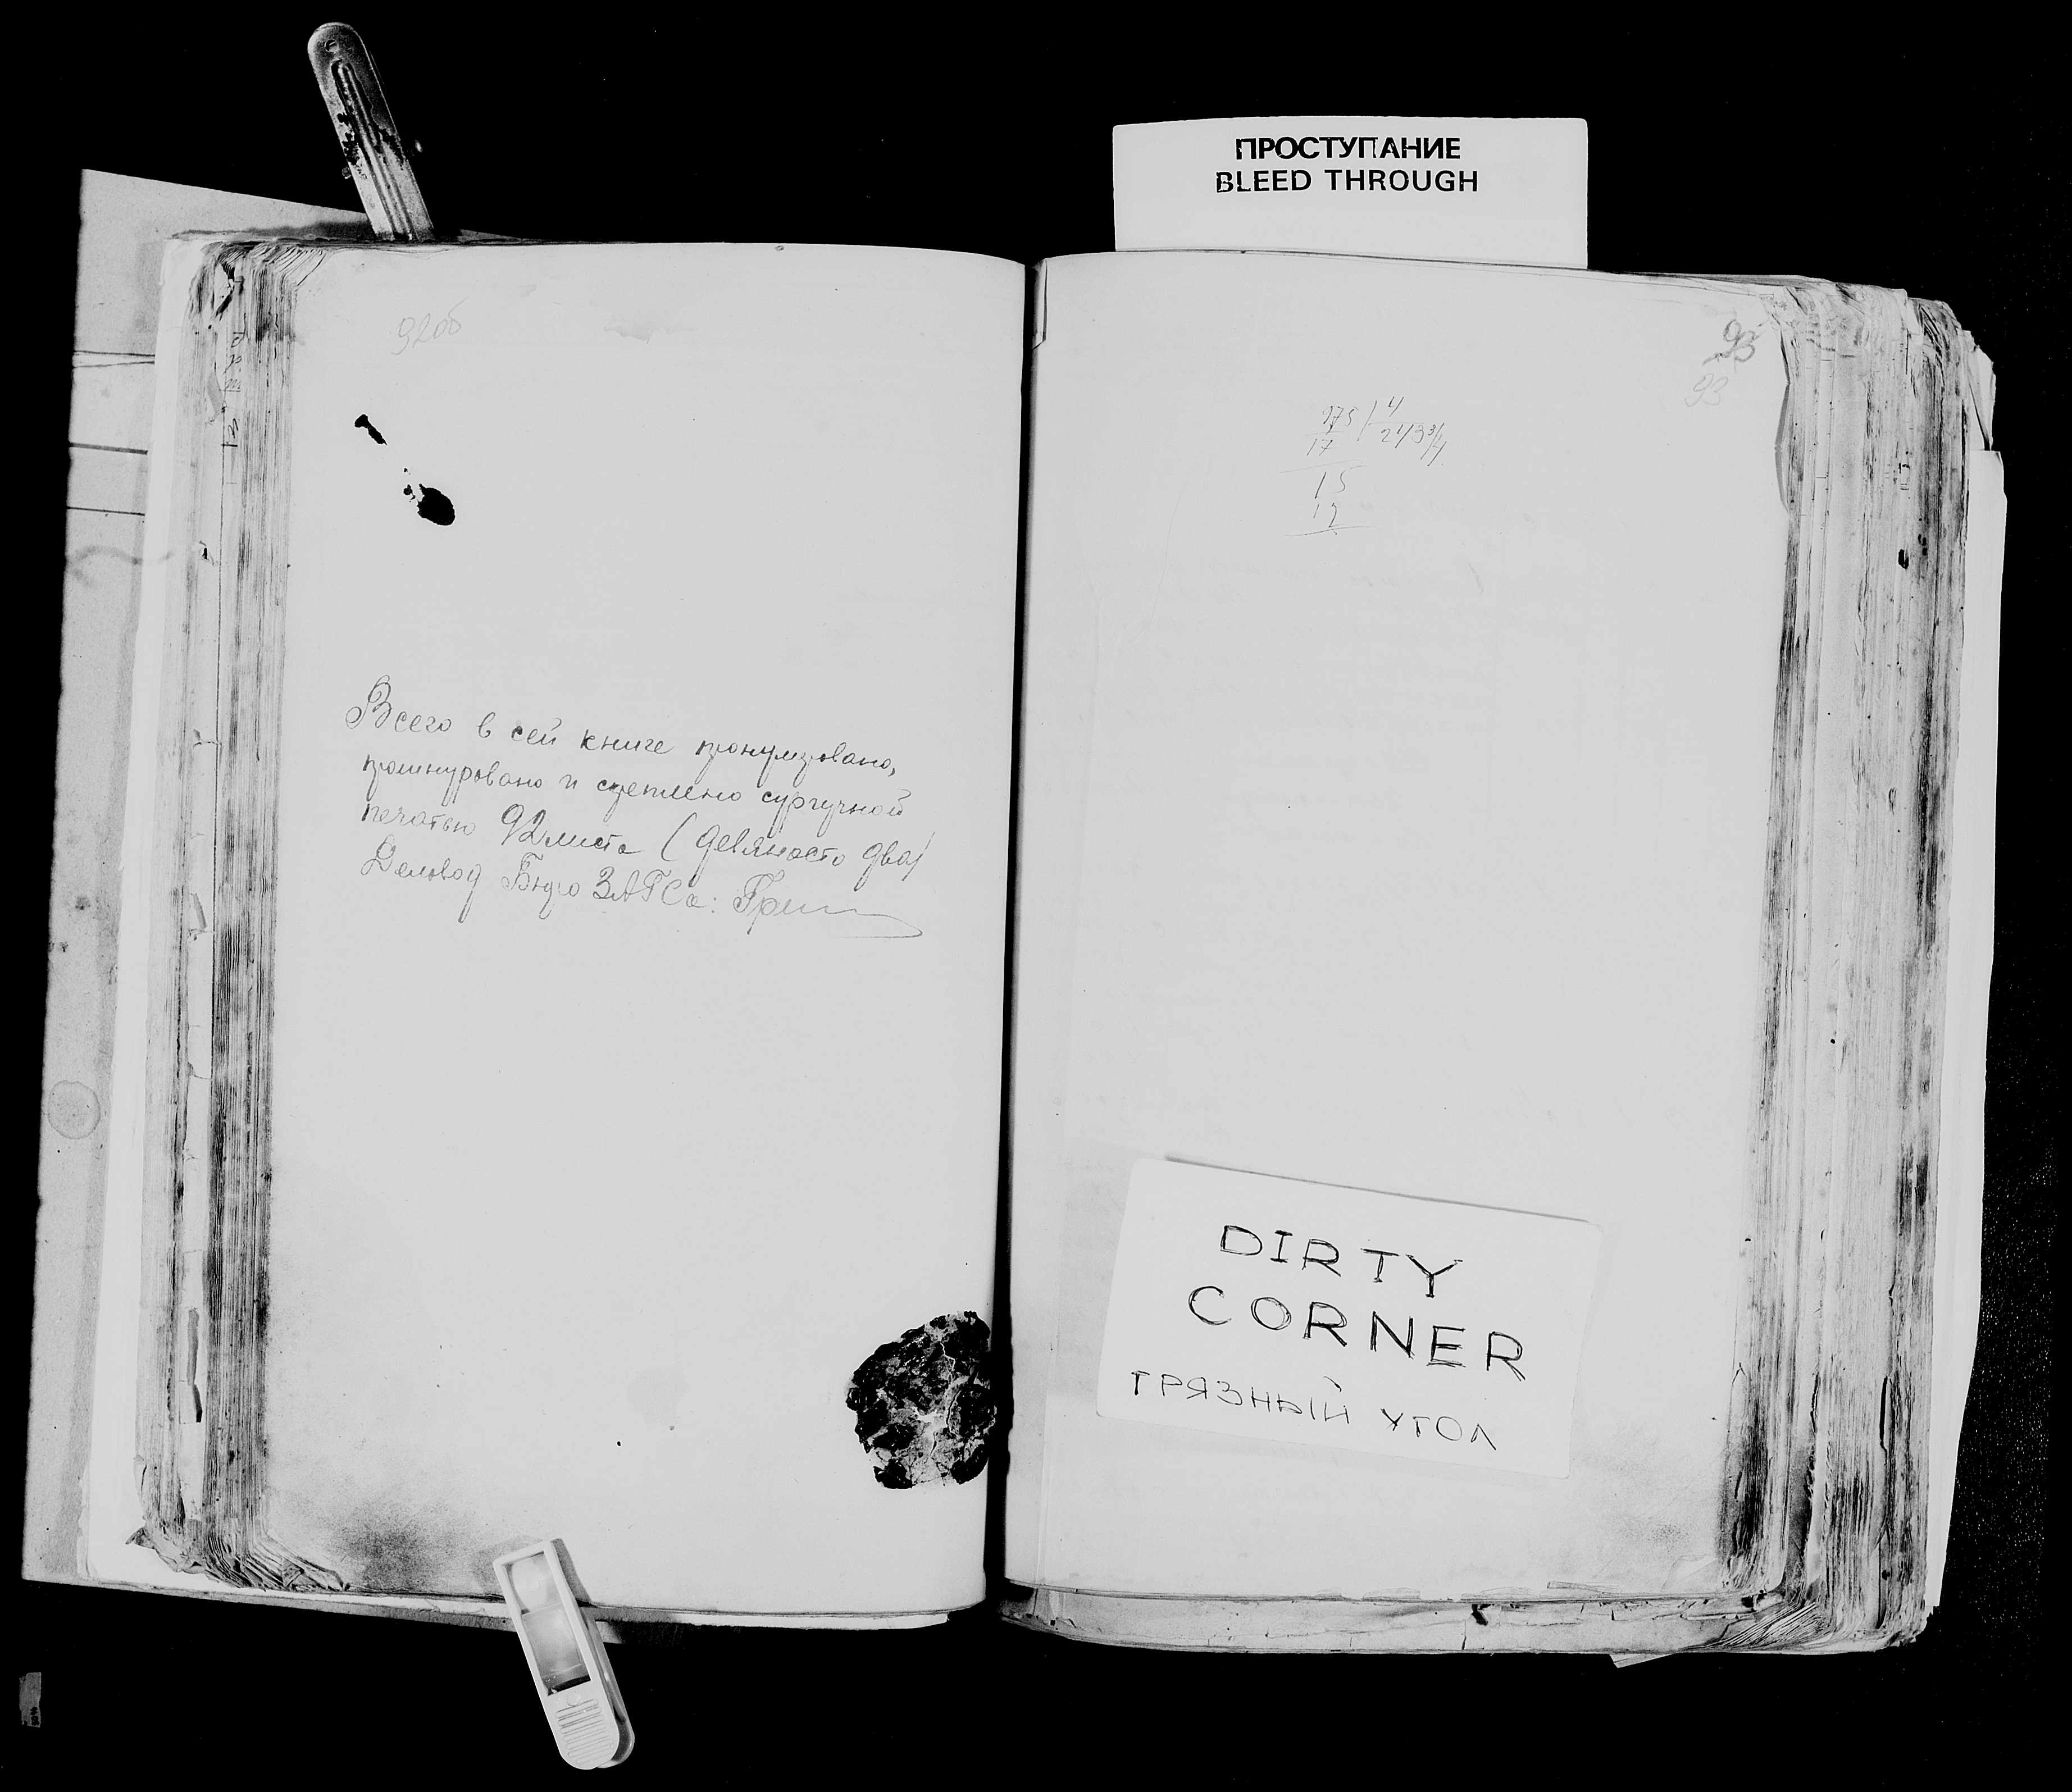 ПРОСТУПАНИЕ
BLEED THROUGH
92об
Всего в сей книге пронумеровано,
прошнуровано и сцеплено сургучной
печатью 92 листа (девяносто два)
Деловод Бюро ЗАГСа:
93
93
975 | 4
17 243 3/4
15
12
DIRTY
CORNER
ГРЯЗНЫЙ УГОЛ